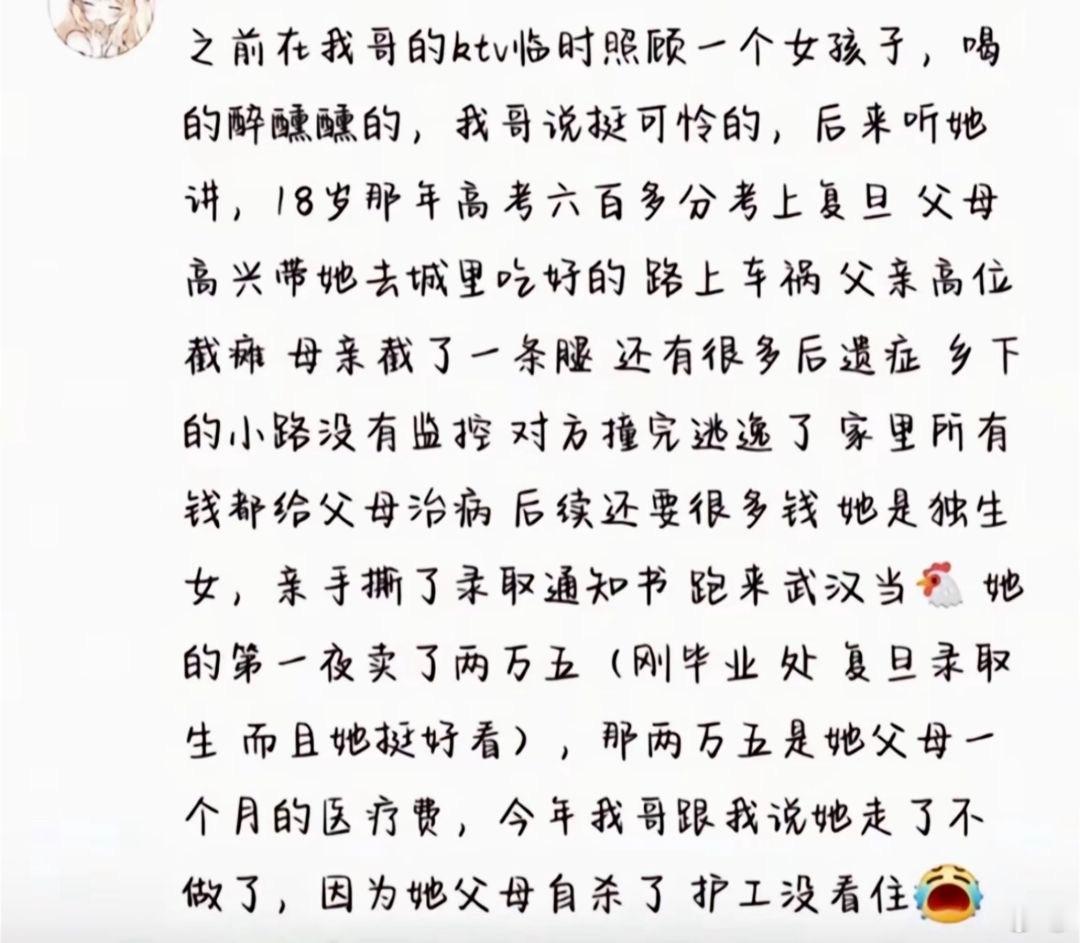 之前在我哥的ktv临时照顾一个女孩子，喝
的醉醺醺的，我哥说挺可怜的，后来听她
讲，18岁那年高考六百多分考上复旦 父母
高兴带她去城里吃好的 路上车祸 父亲高位
截瘫 母亲截了一条腿 还有很多后遗症 乡下
的小路没有监控 对方撞完逃逸了 家里所有
钱都给父母治病 后续还要很多钱 她是独生
女，亲手撕了录取通知书 跑来武汉当🐔 她
的第一夜卖了两万五（刚毕业 处 复旦录取
生 而且她挺好看），那两万五是她父母一
个月的医疗费，今年我哥跟我说她走了不
做了，因为她父母自杀了 护工没看住😭